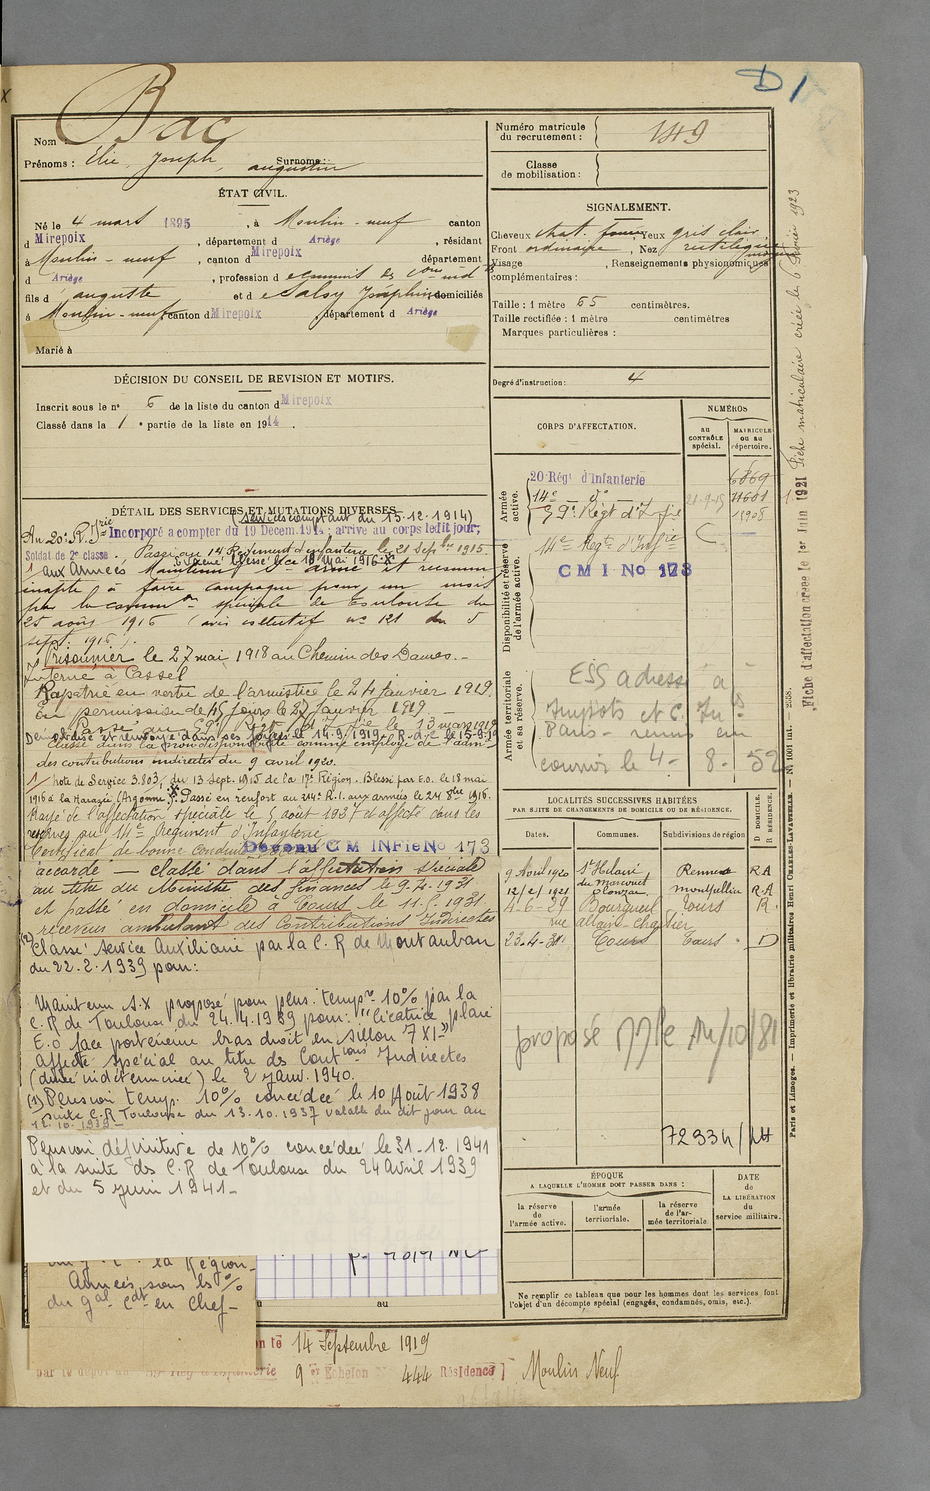 D 1
Nom Bac
Prénoms : Elie, Joseph, augustin Surnoms :
ÉTAT CIVIL.
Né le 4 mars 1895, à Moulin-neuf canton
d Mirepoix, département d Ariège, résidant
à Moulin-neuf, canton d Mirepoix département
d Ariège, profession d e commis des
fils d auguste et d e Salvy Joséphine domiciliés
à Moulin-neuf canton d Mirepoix, département d Ariège
Marié à
DÉCISION DU CONSEIL DE REVISION ET MOTIFS.
Inscrit sous le nº 6 de la liste du canton d Mirepoix
Classé dans la 1 e partie de la liste en 1914.
DÉTAIL DES SERVICES ET MUTATIONS DIVERSES
(Services comptant du 15.12.1914)
Au 20e R. Irie Incorporé a compter du 19 Décem. 1914; arrivé au corps ledit jour;
Soldat de 2e classe. Passé au 14 Régiment d'infanterie le 21 Septbre 1915.
1/ aux Armées Blessé le 18 Mai 1916 X
Maintenu S. armé et reconnu
inapte à faire campagne pour un mois
par la common spéciale de Toulouse du
25 août 1916 (avis collectif nº 121 du 5
sept. 1916).
Prisonnier le 27 mai 1918 au Chemin des Dames.-
Interné à Cassel
Rapatrié en vertu de l'armistice le 24 Janvier 1919.
En permission de 45 jours le 27 Janvier 1919
Passé au Régt d'Ifrie le 13 mars 1919
Démobilisé et renvoyé dans ses foyers le 14.9.1919. R.d.l. le 15.9.19
Classé dans la non disponibilité comme employé de l'admon
des contributions indirectes du 9 avril 1920.
1/ Note de Service 3.803, du 13 Sept. 1915 de la 17e Région. Blessé par E.O. le 18 mai
1916 à la Harazée (Argonne). Passé en renfort au 214e R.I. aux armées le 24 8bre 1916.
Rayé de l'affectation spéciale le 5 août 1937 et affecté dans les
réserves au 14e Régiment d'Infanterie
Certificat de bonne conduite Devenu C M INFie No 173
accordé — classé dans l'affectation spéciale
au titre du Ministre des finances le 9-4-1931
et passé en domicile à Tours le 11.5.1931
receveur ambulant des Contributions Indirectes
(2) Classé Service Auxiliaire par la C. R de Montauban
du 22.2.1939 pour:
Maintenu S.X proposé pour pens. tempre 10% par la
C.R de Toulouse du 24.4.1939 pour: "Cicatrice plaie
E.O face postérieure bras droit en sillon 7 X 1"
Affecté spécial au titre des Contions Indirectes
(durée indéterminée) le 2 Janv. 1940.
(1) Pension temp. 10% concédée le 10 Août 1938
suite C.R Toulouse du 13.10.1937 valable du dit jour au
12.10.1939-
Pension définitive de 10% concédée le 31.12.1941
à la suite des C.R de Toulouse du 24 avril 1939
et du 5 juin 1941-
la Région-
Armées sous les
du Gal Cdt en Chef-
au
14 Septembre 1919
9 er Echelon 444 Résidence Moulin Neuf
Numéro matricule
du recrutement : 149
Classe
de mobilisation :
SIGNALEMENT.
Cheveux chat. foncé, Yeux gris clair
Front ordinaire, Nez rectiligne
Visage, Renseignements physionomiques
complémentaires :
Taille : 1 mètre 65 centimètres.
Taille rectifiée : 1 mètre centimètres
Marques particulières :
Degré d'instruction : 4
CORPS D'AFFECTATION.
NUMÉROS
au
CONTRÔLE
spécial.
MATRICULE
ou au
répertoire.
Armée
active.
20 Régt d'Infanterie 6869
14e do 21-9-15 11601
Régt d'Ifrie 11908
Disponibilité et réserve
de l'armée active.
14e Regt d'Infrie
C M I No 173
Armée territoriale
et sa réserve.
ESS adressé à
Impôts et C. Ind
Paris - remis au
courrier le 4-8-52
LOCALITÉS SUCCESSIVES HABITÉES
PAR SUITE DE CHANGEMENTS DE DOMICILE OU DE RÉSIDENCE.
Dates. Communes. Subdivisions de région D. DOMICILE. R. RÉSIDENCE.
9 Avril 1920 St Hilaire Rennes RA
12/2/1921 Montpellier R.A
4-6-29 Bourgueil Tours R
rue
23-4-31 Tours Tours D
proposé 14/10/81
72334/
ÉPOQUE
A LAQUELLE L'HOMME DOIT PASSER DANS :
la réserve
de
l'armée active.
l'armée
territoriale.
la réserve
de l'ar-
mée territoriale
DATE
de
LA LIBÉRATION
du
service militaire.
Ne remplir ce tableau que pour les hommes dont les services font
l'objet d'un décompte spécial (engagés, condamnés, omis, etc.).
Fiche d'affectation créée le 1er Juin 1921 Fiche matriculaire créée le 6 Février 1923
Paris et Limoges. — Imprimerie et librairie militaires Henri CHARLES-LAVAUZELLE. — No 1001 int. — 2558.